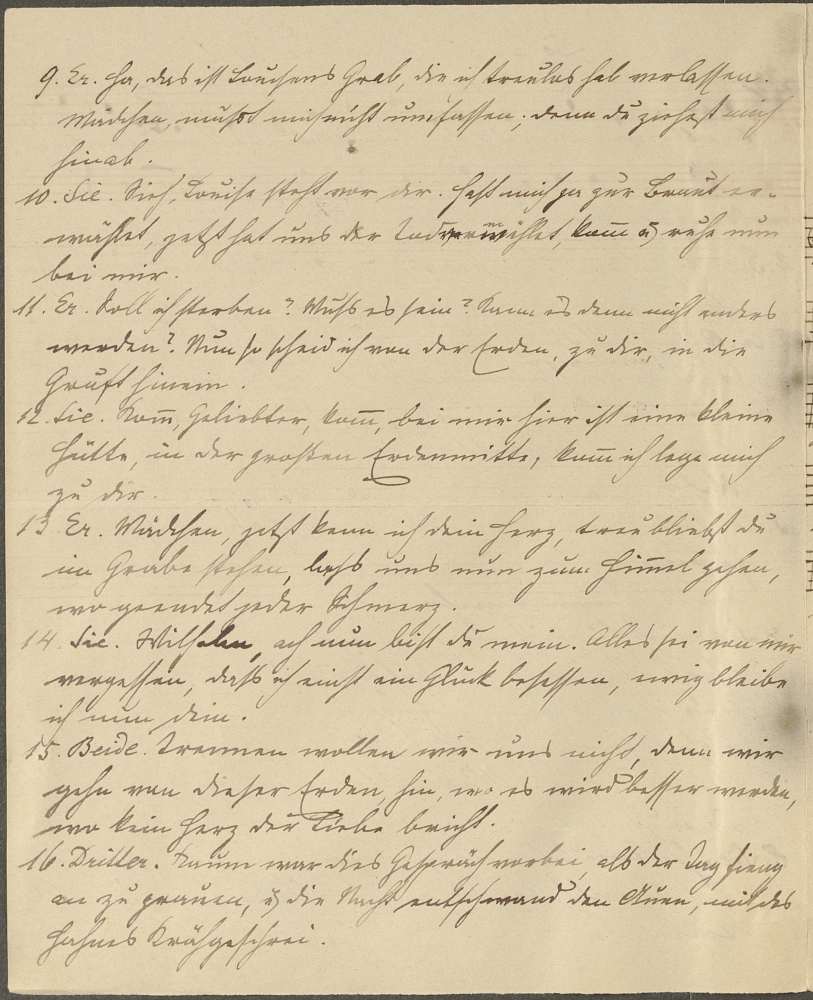 9. Er. Ha, das ist Louisens Grab, die ich treulos hab verlassen.
Mädchen, mußt mich nicht umfassen; denn du ziehest mich
hinab.
10. Sie. Sieh, Louise steht vor dir. Hast mich ja zur Braut er-
wählet, jetzt hat uns der Tod vermählet, kom̅ u ruhe nun
bei mir.
11. Er. Soll ich sterben? Muß es sein? Kann es denn nicht anders
werden? Nun so scheid ich von der Erden, zu dir, in die
Gruft hinein.
12. Sie. Kom̅, Geliebter, kom̅, bei mir hier ist eine kleine
Hütte, in der großen Erdenmitte, kom̅ ich lege mich
zu dir.
13 Er. Mädchen, jetzt kenn ich dein Herz, treu bliebst du
im Grabe stehen, laß uns nun zum Him̅el gehen,
wo geendet jeder Schmerz.
14. Sie. Wilhelm, ach nun bist du mein. Alles sei von mir
vergessen, daß ich einst ein Glück besessen, ewig bleibe
ich nun dein.
15. Beide. Trennen wollen wir uns nicht, denn wir
gehn von dieser Erden, hin, wo es wird besser werden,
wo kein Herz der Liebe bricht.
16. Dritter. Kaum war dies Gespräch vorbei, als der Tag fieng
an zu grauen, u die Nacht entschwand den Auen, mit des
Hahnes Krähgeschrei.